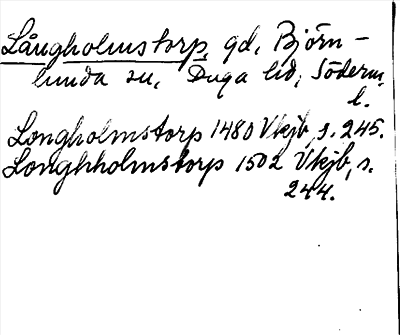 Långholmstorp, gd, Björn-
lunda sn, Daga hd, Söderm.
l.
Longholmstorp 1480 Vkjb, s. 245.
Longhholmstorp 1502 Vkjb, s.
244.